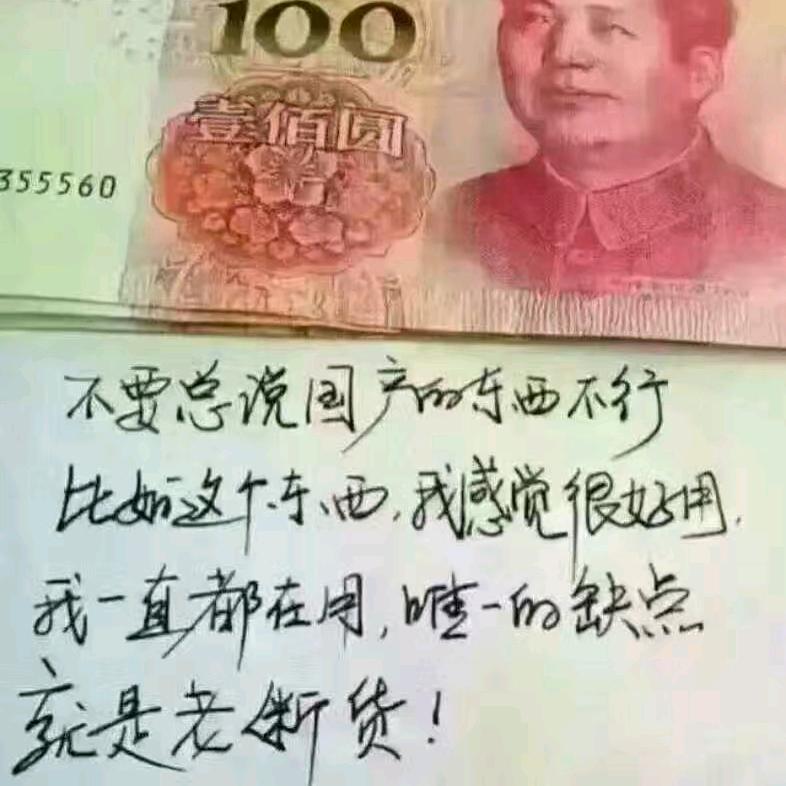 100
壹佰圆
355560
不要总说国产的东西不行
比如这个东西,我感觉很好用.
我一直都在用,唯一的缺点
就是老断货!